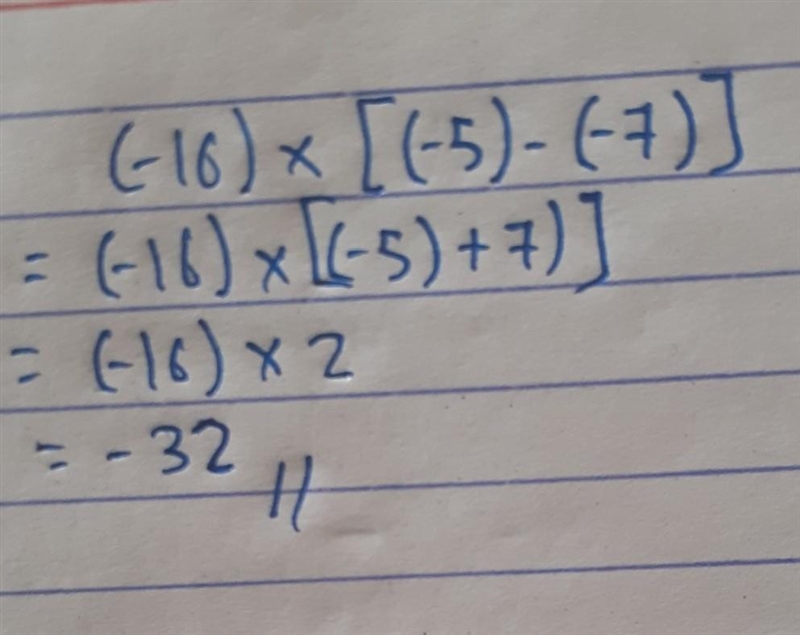 (-16) × [(-5) - (-7)]
= (-16) × [(-5) + 7)]
= (-16) × 2
= -32 //